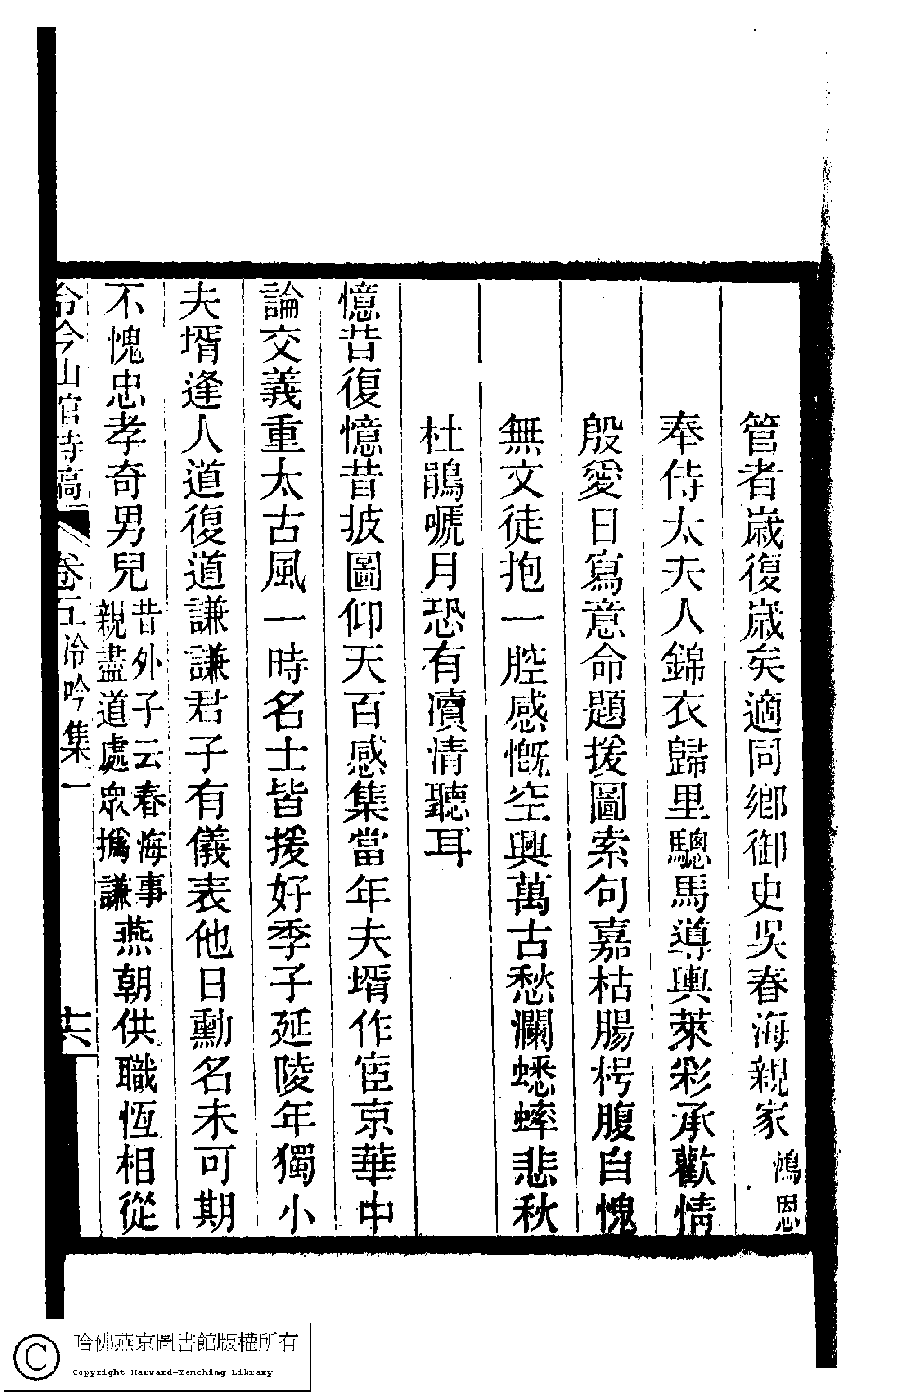 管者歲復歲矣適同鄉御史吳春海親家鴻恩
奉侍太夫人錦衣歸里驄馬導輿萊彩承歡情
殷愛日寫意命題援圖索句嘉枯腸枵腹自愧
無文徒抱一腔感慨空興萬古愁瀾蟋蟀悲秋
杜鵑嗁月恐有瀆清聽耳
憶昔復憶昔披圖仰天百感集當年夫壻作宦京華中
論交義重太古風一時名士皆援好季子延陵年獨小
夫壻逢人道復道謙謙君子有儀表他日勳名未可期
不愧忠孝奇男兒昔外子云春海事親盡道處眾撝謙燕朝供職恆相從
冷吟仙官詩稿 卷五冷吟集一 十六
哈佛燕京圖書館版權所有
Copyright Harvard-Yenching Library